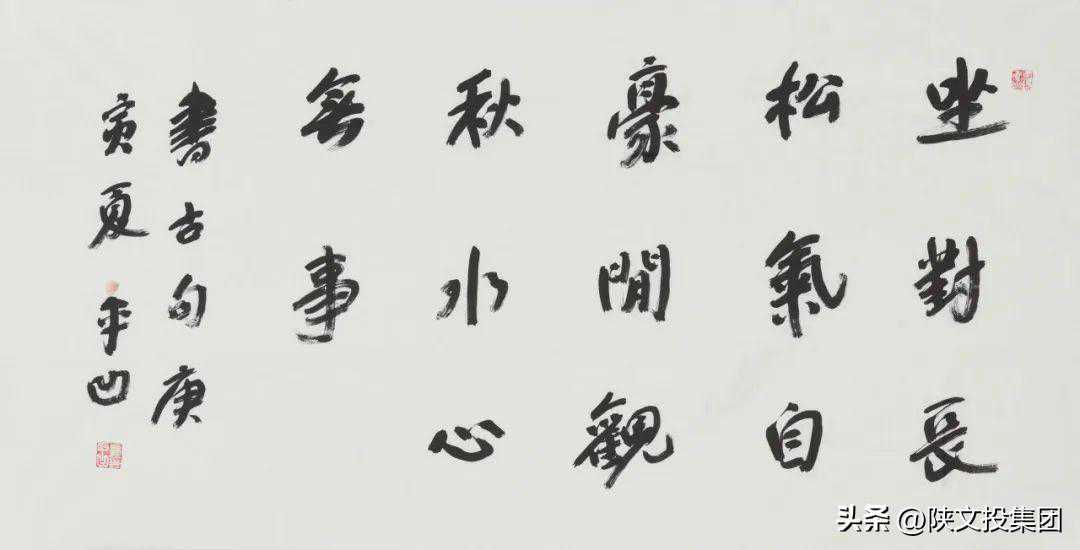 坐對長
松氣自
豪閒觀
秋水心
無事
書古句庚
寅夏平凹
头条 @陕文投集团